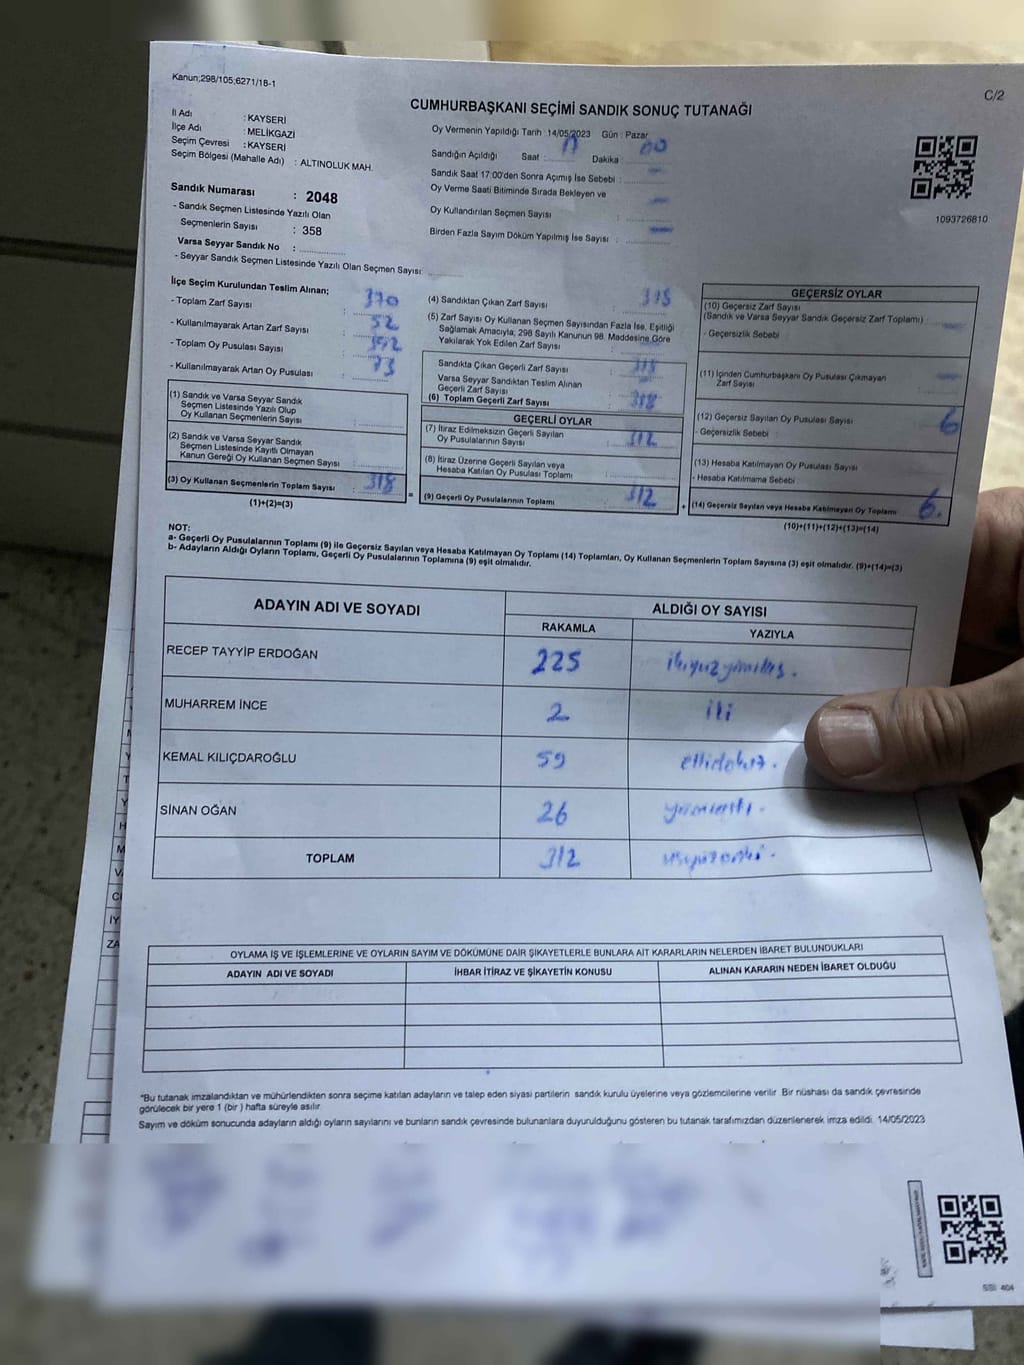 Kanun;298/105;6271/18-1
C/2
CUMHURBAŞKANI SEÇİMİ SANDIK SONUÇ TUTANAĞI
İl Adı : KAYSERİ
İlçe Adı : MELİKGAZİ
Seçim Çevresi : KAYSERİ
Seçim Bölgesi (Mahalle Adı) : ALTINOLUK MAH.
Sandık Numarası : 2048
- Sandık Seçmen Listesinde Yazılı Olan
Seçmenlerin Sayısı : 358
Varsa Seyyar Sandık No :
- Seyyar Sandık Seçmen Listesinde Yazılı Olan Seçmen Sayısı:
Oy Vermenin Yapıldığı Tarih :14/05/2023 Gün : Pazar
Sandığın Açıldığı Saat : 17 Dakika : 00
Sandık Saat 17:00'den Sonra Açımış İse Sebebi :
Oy Verme Saati Bitiminde Sırada Bekleyen ve
Oy Kullandırılan Seçmen Sayısı :
Birden Fazla Sayım Döküm Yapılmış İse Sayısı :
1093726810
İlçe Seçim Kurulundan Teslim Alınan;
- Toplam Zarf Sayısı : 370
- Kullanılmayarak Artan Zarf Sayısı : 52
- Toplam Oy Pusulası Sayısı :
- Kullanılmayarak Artan Oy Pusulası : 73
(1) Sandık ve Varsa Seyyar Sandık
Seçmen Listesinde Yazılı Olup
Oy Kullanan Seçmenlerin Sayısı :
(2) Sandık ve Varsa Seyyar Sandık
Seçmen Listesinde Kayıtlı Olmayan
Kanun Gereği Oy Kullanan Seçmen Sayısı :
(3) Oy Kullanan Seçmenlerin Toplam Sayısı : 318
(1)+(2)=(3)
(4) Sandıktan Çıkan Zarf Sayısı : 318
(5) Zarf Sayısı Oy Kullanan Seçmen Sayısından Fazla İse, Eşitliği
Sağlamak Amacıyla; 298 Sayılı Kanunun 98. Maddesine Göre
Yakılarak Yok Edilen Zarf Sayısı :
Sandıkta Çıkan Geçerli Zarf Sayısı : 318
Varsa Seyyar Sandıktan Teslim Alınan
Geçerli Zarf Sayısı :
(6) Toplam Geçerli Zarf Sayısı : 318
GEÇERLİ OYLAR
(7) İtiraz Edilmeksizin Geçerli Sayılan
Oy Pusulalarının Sayısı : 312
(8) İtiraz Üzerine Geçerli Sayılan veya
Hesaba Katılan Oy Pusulası Toplamı :
= (9) Geçerli Oy Pusulalarının Toplamı : 312
GEÇERSİZ OYLAR
(10) Geçersiz Zarf Sayısı
(Sandık ve Varsa Seyyar Sandık Geçersiz Zarf Toplamı) :
- Geçersizlik Sebebi :
(11) İçinden Cumhurbaşkanı Oy Pusulası Çıkmayan
Zarf Sayısı :
(12) Geçersiz Sayılan Oy Pusulası Sayısı : 6
- Geçersizlik Sebebi :
(13) Hesaba Katılmayan Oy Pusulası Sayısı :
- Hesaba Katılmama Sebebi :
+ (14) Geçersiz Sayılan veya Hesaba Katılmayan Oy Toplamı : 6.
(10)+(11)+(12)+(13)=(14)
NOT:
a- Geçerli Oy Pusulalarının Toplamı (9) ile Geçersiz Sayılan veya Hesaba Katılmayan Oy Toplamı (14) Toplamları, Oy Kullanan Seçmenlerin Toplam Sayısına (3) eşit olmalıdır. (9)+(14)=(3)
b- Adayların Aldığı Oyların Toplamı, Geçerli Oy Pusulalarının Toplamına (9) eşit olmalıdır.
ADAYIN ADI VE SOYADI ALDIĞI OY SAYISI
RAKAMLA YAZIYLA
RECEP TAYYİP ERDOĞAN 225 ikiyüzyirmibeş.
MUHARREM İNCE 2 iki
KEMAL KILIÇDAROĞLU 59 ellidokuz.
SİNAN OĞAN 26 yirmialtı.
TOPLAM 312 üçyüzoniki.
OYLAMA İŞ VE İŞLEMLERİNE VE OYLARIN SAYIM VE DÖKÜMÜNE DAİR ŞİKAYETLERLE BUNLARA AİT KARARLARIN NELERDEN İBARET BULUNDUKLARI
ADAYIN ADI VE SOYADI İHBAR İTİRAZ VE ŞİKAYETİN KONUSU ALINAN KARARIN NEDEN İBARET OLDUĞU
"Bu tutanak imzalandıktan ve mühürlendikten sonra seçime katılan adayların ve talep eden siyasi partilerin sandık kurulu üyelerine veya gözlemcilerine verilir. Bir nüshası da sandık çevresinde
görülecek bir yere 1 (bir ) hafta süreyle asılır.
Sayım ve döküm sonucunda adayların aldığı oyların sayılarını ve bunların sandık çevresinde bulunanlara duyurulduğunu gösteren bu tutanak tarafımızdan düzenlenerek imza edildi. 14/05/2023